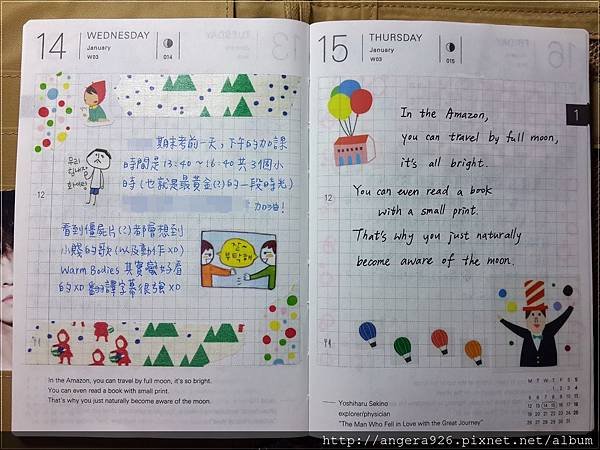 14
WEDNESDAY
January
W03
014
우리
힘내요
화이팅
期末考前一天,下午的加課
時間是13:40~16:40共3個小
時(也就是最黃金(?)的一段時光)
加油!
12
看到殭屍片(?)都會想到
小賤的歌(以及動作XD)
Warm Bodies 其實蠻好看
的XD 翻譯字幕很強XD
잘~
부탁해
In the Amazon, you can travel by full moon, it's so bright.
You can even read a book with small print.
That's why you just naturally become aware of the moon.
15
THURSDAY
January
W03
015
1
In the Amazon,
you can travel by full moon,
it's all bright.
12
You can even read a book
with a small print.
That's why you just naturally
become aware of the moon.
Yoshiharu Sekino
explorer/physician
"The Man Who Fell in Love with the Great Journey"
M T W T F S S
1 2 3 4
5 6 7 8 9 10 11
12 13 14 15 16 17 18
19 20 21 22 23 24 25
26 27 28 29 30 31
http://angera926.pixnet.net/album